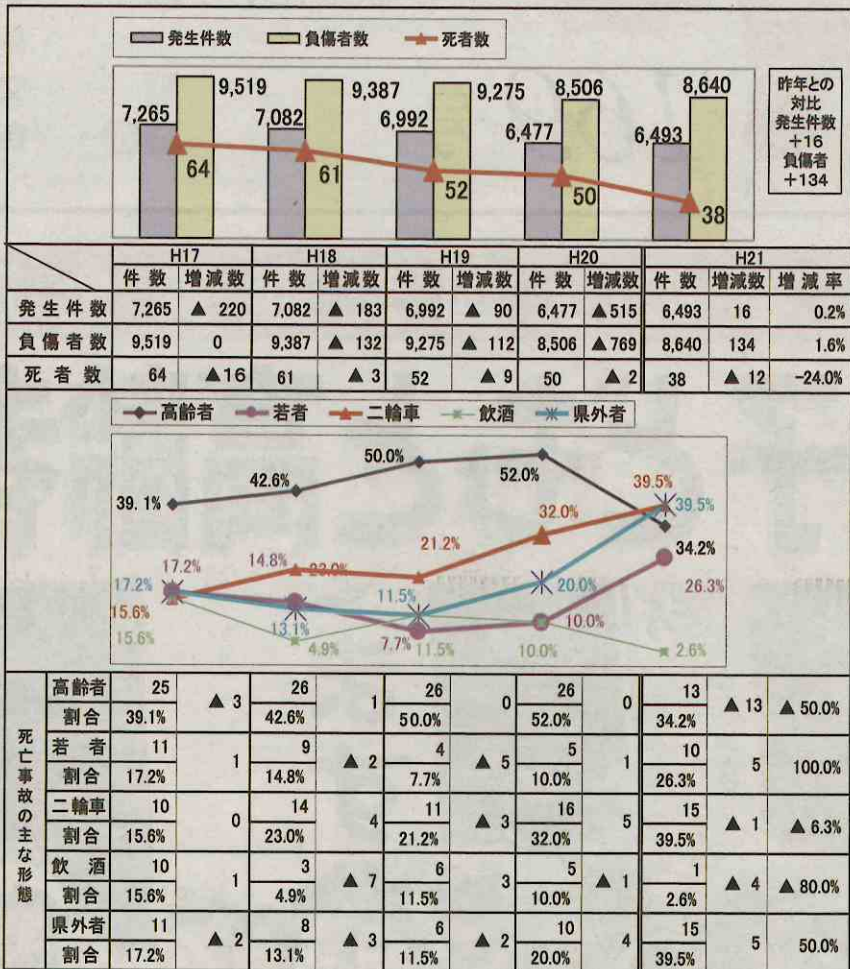 発生件数 負傷者数 死者数
7,265 9,519 7,082 9,387 6,992 9,275 6,477 8,506 6,493 8,640
64 61 52 50 38
昨年との
対比
発生件数
+16
負傷者
+134
H17 H18 H19 H20 H21
件数 増減数 件数 増減数 件数 増減数 件数 増減数 件数 増減数 増減率
発生件数 7,265 ▲ 220 7,082 ▲ 183 6,992 ▲ 90 6,477 ▲515 6,493 16 0.2%
負傷者数 9,519 0 9,387 ▲ 132 9,275 ▲ 112 8,506 ▲769 8,640 134 1.6%
死者数 64 ▲16 61 ▲ 3 52 ▲ 9 50 ▲ 2 38 ▲ 12 -24.0%
高齢者 若者 二輪車 飲酒 県外者
39.1% 42.6% 50.0% 52.0% 34.2%
17.2% 14.8% 7.7% 10.0% 26.3%
15.6% 23.0% 21.2% 32.0% 39.5%
15.6% 4.9% 11.5% 10.0% 2.6%
17.2% 13.1% 11.5% 20.0% 39.5%
死亡事故の主な形態
高齢者 25 ▲ 3 26 1 26 0 26 0 13 ▲ 13 ▲ 50.0%
割合 39.1% 42.6% 50.0% 52.0% 34.2%
若者 11 1 9 ▲ 2 4 ▲ 5 5 1 10 5 100.0%
割合 17.2% 14.8% 7.7% 10.0% 26.3%
二輪車 10 0 14 4 11 ▲ 3 16 5 15 ▲ 1 ▲ 6.3%
割合 15.6% 23.0% 21.2% 32.0% 39.5%
飲酒 10 1 3 ▲ 7 6 3 5 ▲ 1 1 ▲ 4 ▲ 80.0%
割合 15.6% 4.9% 11.5% 10.0% 2.6%
県外者 11 ▲ 2 8 ▲ 3 6 ▲ 2 10 4 15 5 50.0%
割合 17.2% 13.1% 11.5% 20.0% 39.5%